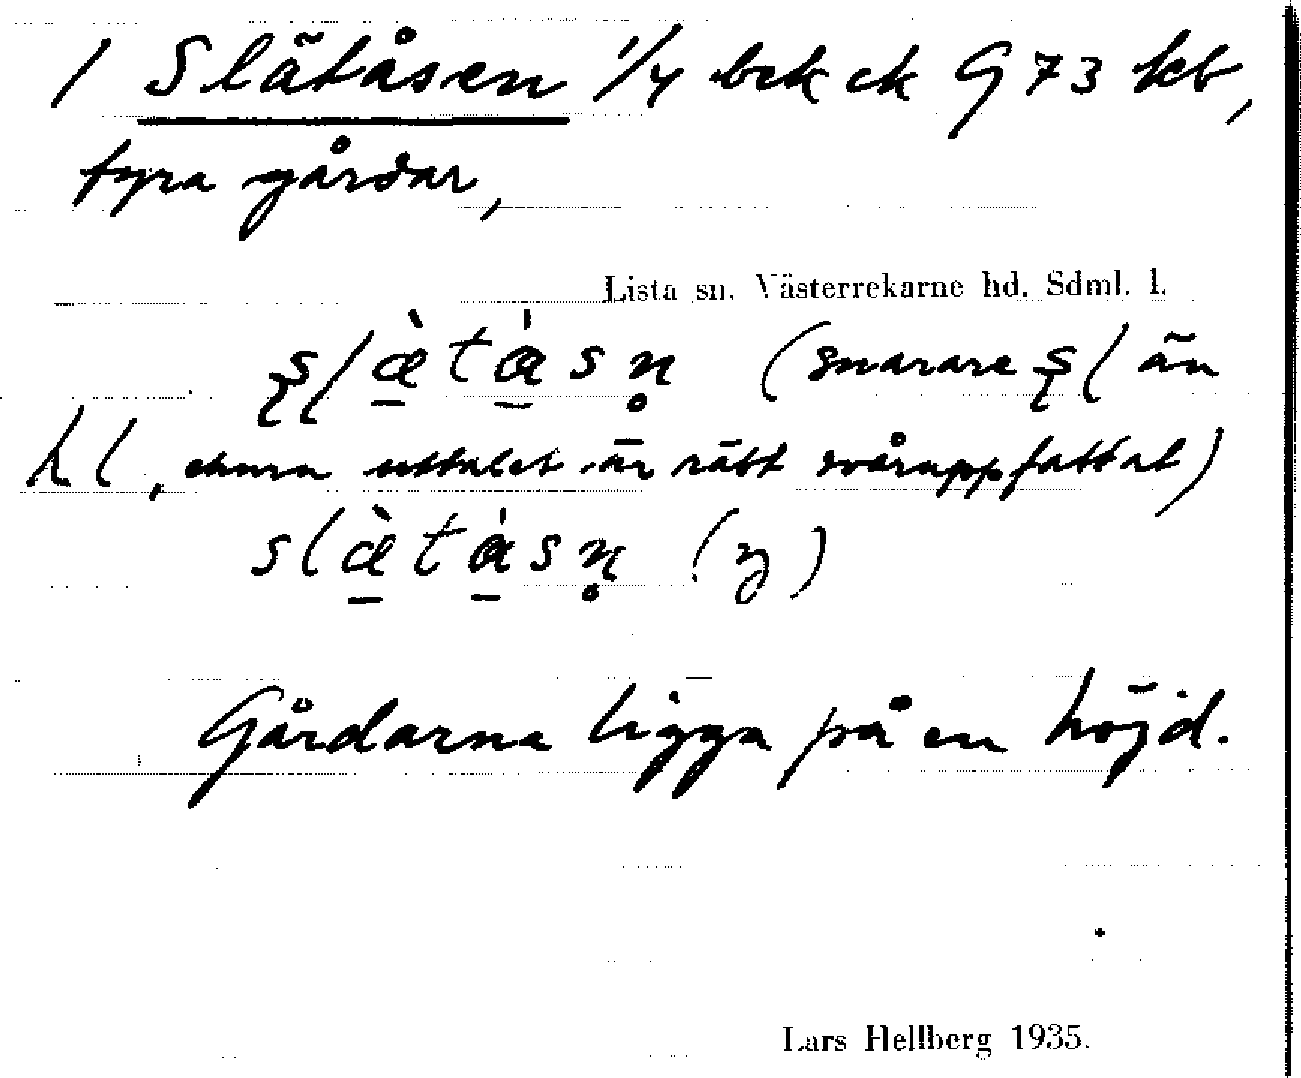 1 Slätåsen 1/4 bck ek G 73 kb,
fyra gårdar,
Lista sn. Västerrekarne hd. Sdml. l.
(snarare än
ehuru uttalet är rätt svåruppfattat)
slæ̀tɑ́sn̥ (y)
Gårdarna ligga på en höjd.
Lars Hellberg 1935.